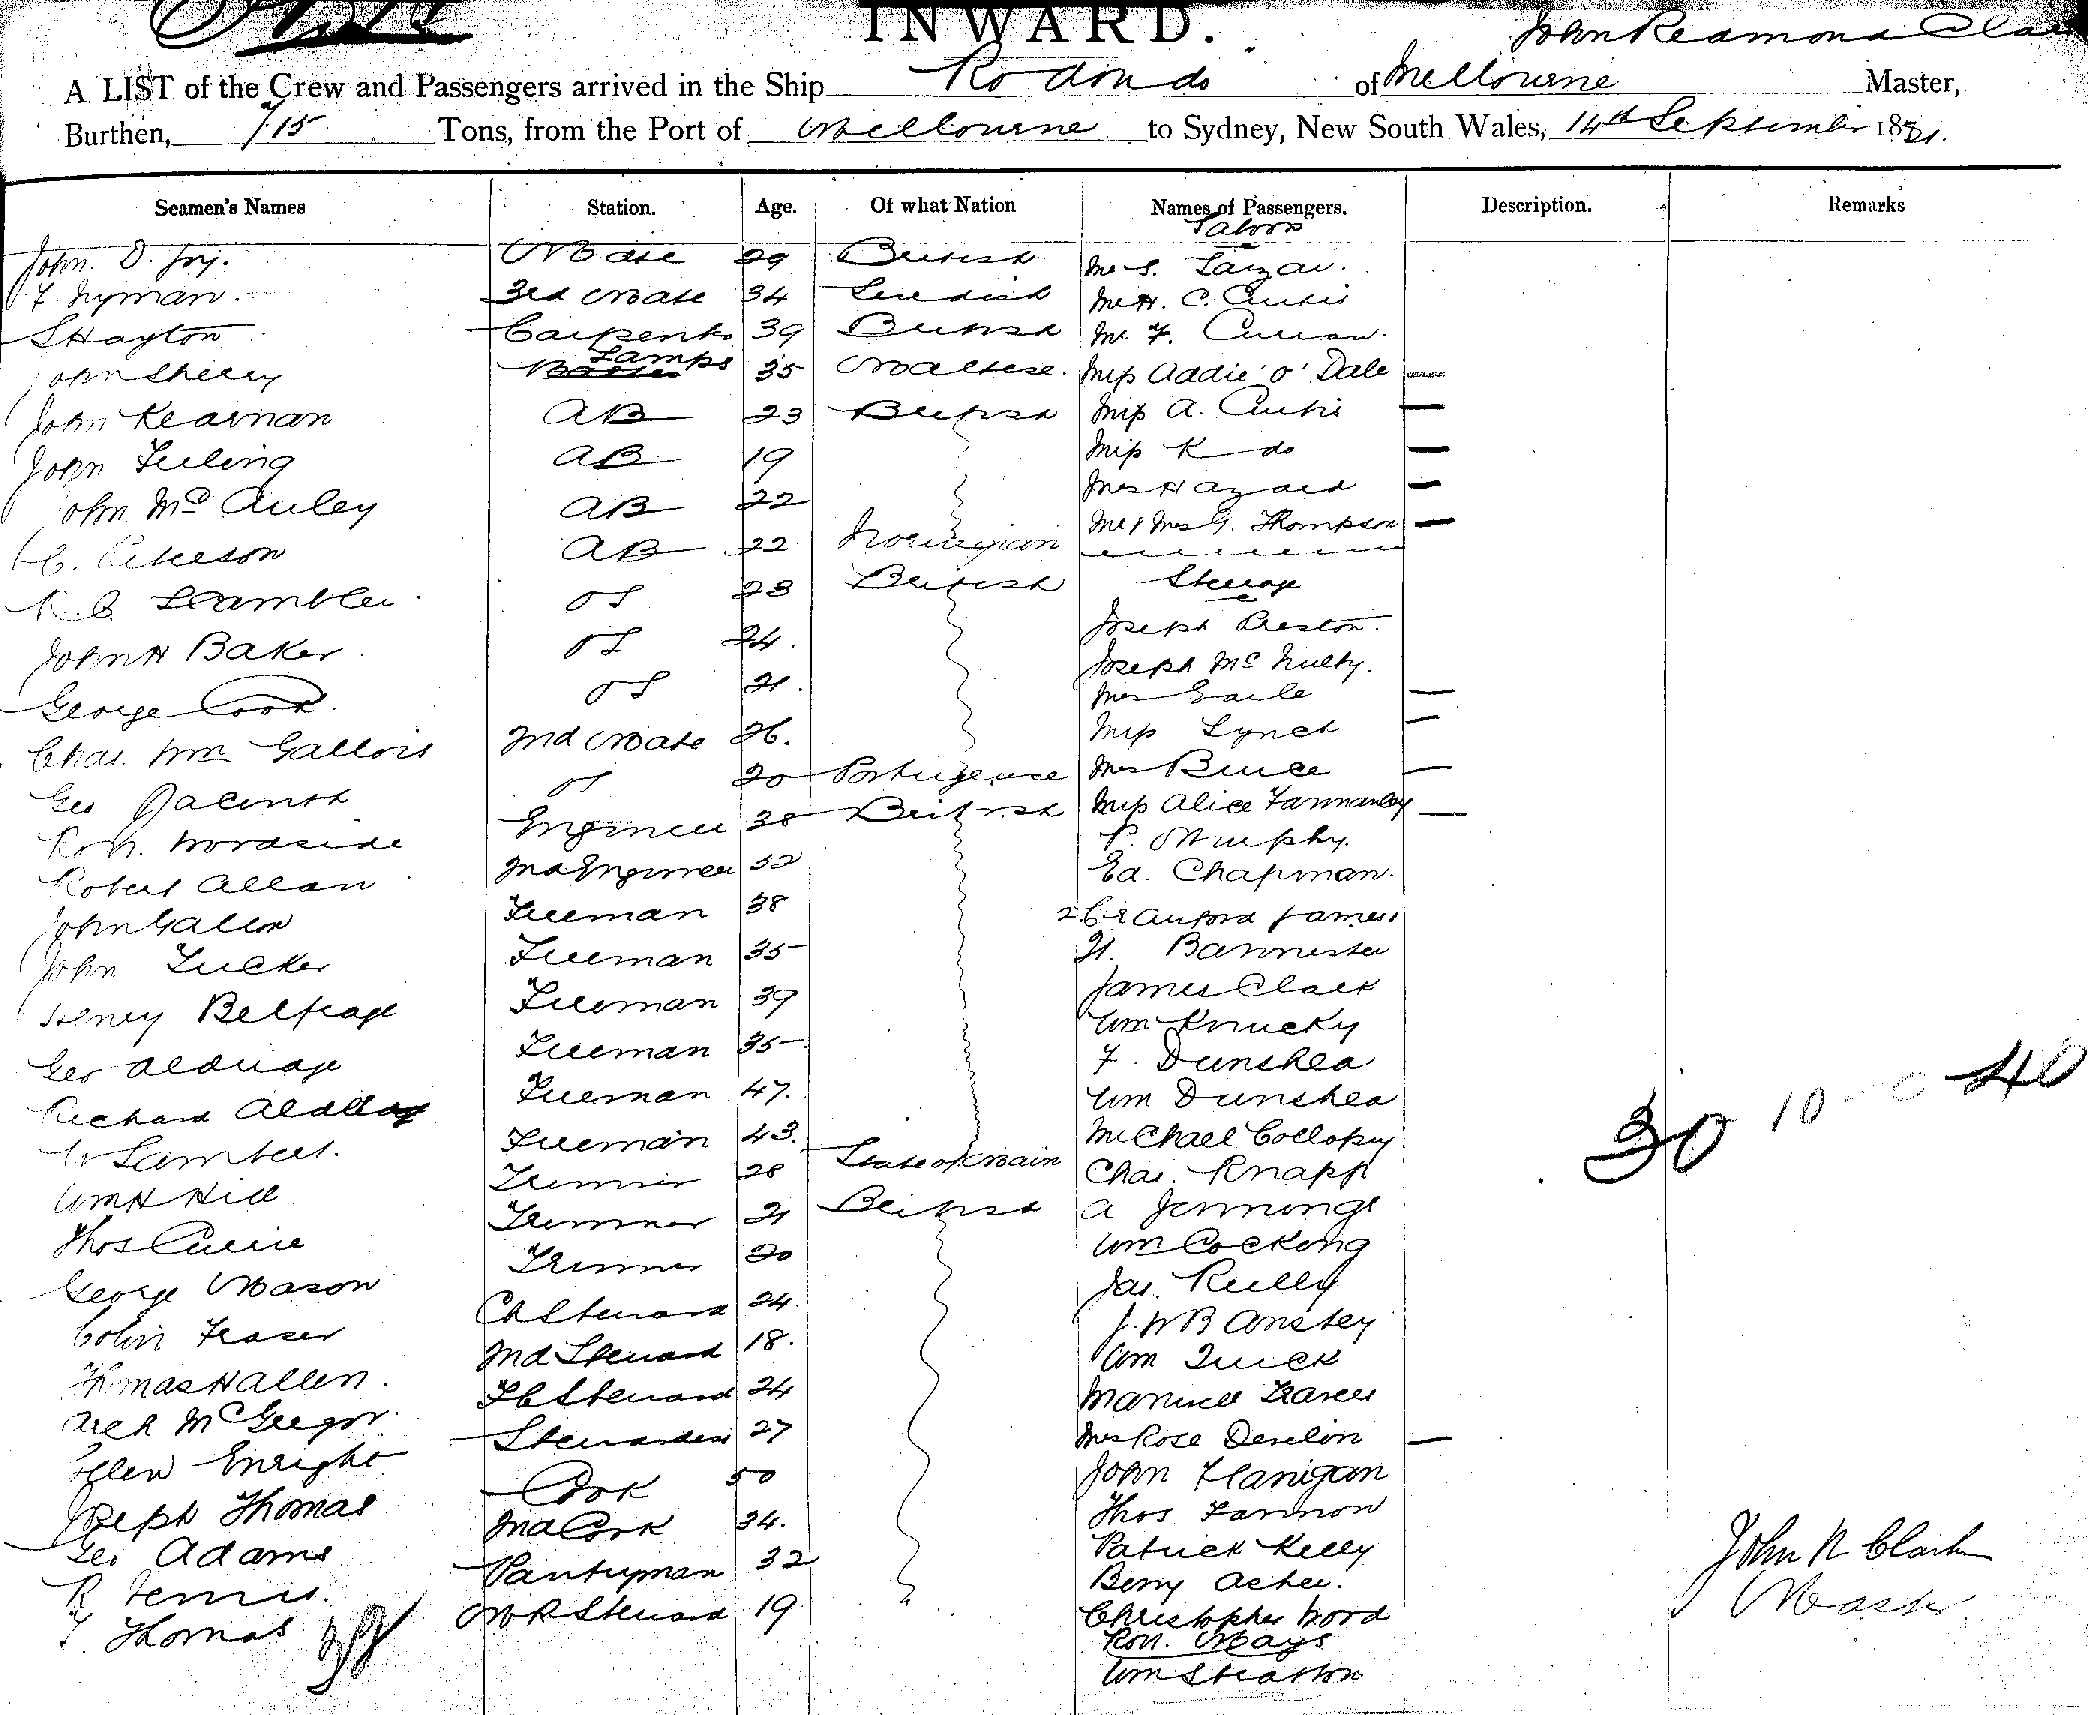 INWARD.
John Reamond Clark
A LIST of the Crew and Passengers arrived in the Ship Rodondo of Melbourne Master,
Burthen, 715 Tons, from the Port of Melbourne to Sydney, New South Wales, 14th September 1881.
Seamen's Names Station. Age. Of what Nation Names of Passengers. Description. Remarks
Saloon
John. O. Joy. Mate 29 British Mr S.
F. Nyman. 3rd Mate 34 Swedish Mr H. C. Curtis
S Hayton Carpenter 39 British Mr. F. Curran.
John Sherry Lamps 35 Maltese. Miss Addie O'Dale —
John Kearnan AB 23 British Miss A. Curtis —
John Feeling AB 19 Miss K do —
John McAuley AB 22 Mrs Hazard —
C. Peterson AB 22 Norwegian Mr & Mrs G. Thompson —
R. Scambler OS 23 British Steerage
John H Baker OS 24. Joseph Preston.
George Cook. OS 21. Joseph McNulty.
Chas. Wm Gallois 2nd Mate 26. Mrs Earle —
Geo Jacinth OS 20 Portugeuese Miss Lynch —
Robt. Woodside Engineer 38 British Mrs Bruce —
Robert Allan 2nd Engineer 32 Miss Alice —
John Gallon Fireman 38 P. Murphy.
John Tucker Fireman 35 Ed. Chapman.
Henry Belfrage Fireman 39 James
Geo Aldridge Fireman 35 H. Bannister
Richard Fireman 47. James Clark
W Lambert. Fireman 43. Wm Knucky
Wm H Hill Trimmer 28 State of Main F. Dunshea
Thos Currie Trimmer 21 British Wm Dunshea
George Mason Trimmer 20 Michael Collopy
Colin Fraser Ch Steward 24. Chas. Knapp
Thomas Hallen. 2nd Steward 18. A Jennings
Arch McGregor. FC Steward 24 Wm Cocking
Ellen Enright Stewardess 27 Jas. Reilly
Joseph Thomas Cook 50 J. W B Anstey
Geo Adams 2nd Cook 34. Wm Quick
R Ferris. Pantryman 32
F. Thomas MR Steward 19 Mrs Rose Devlin —
John Flanigan
Thos Fannon
Patrick Kelly
Berry
Christopher Wood
Robt. Mays
Wm Stratton
30 10 - 0 40
John R Clark
Master